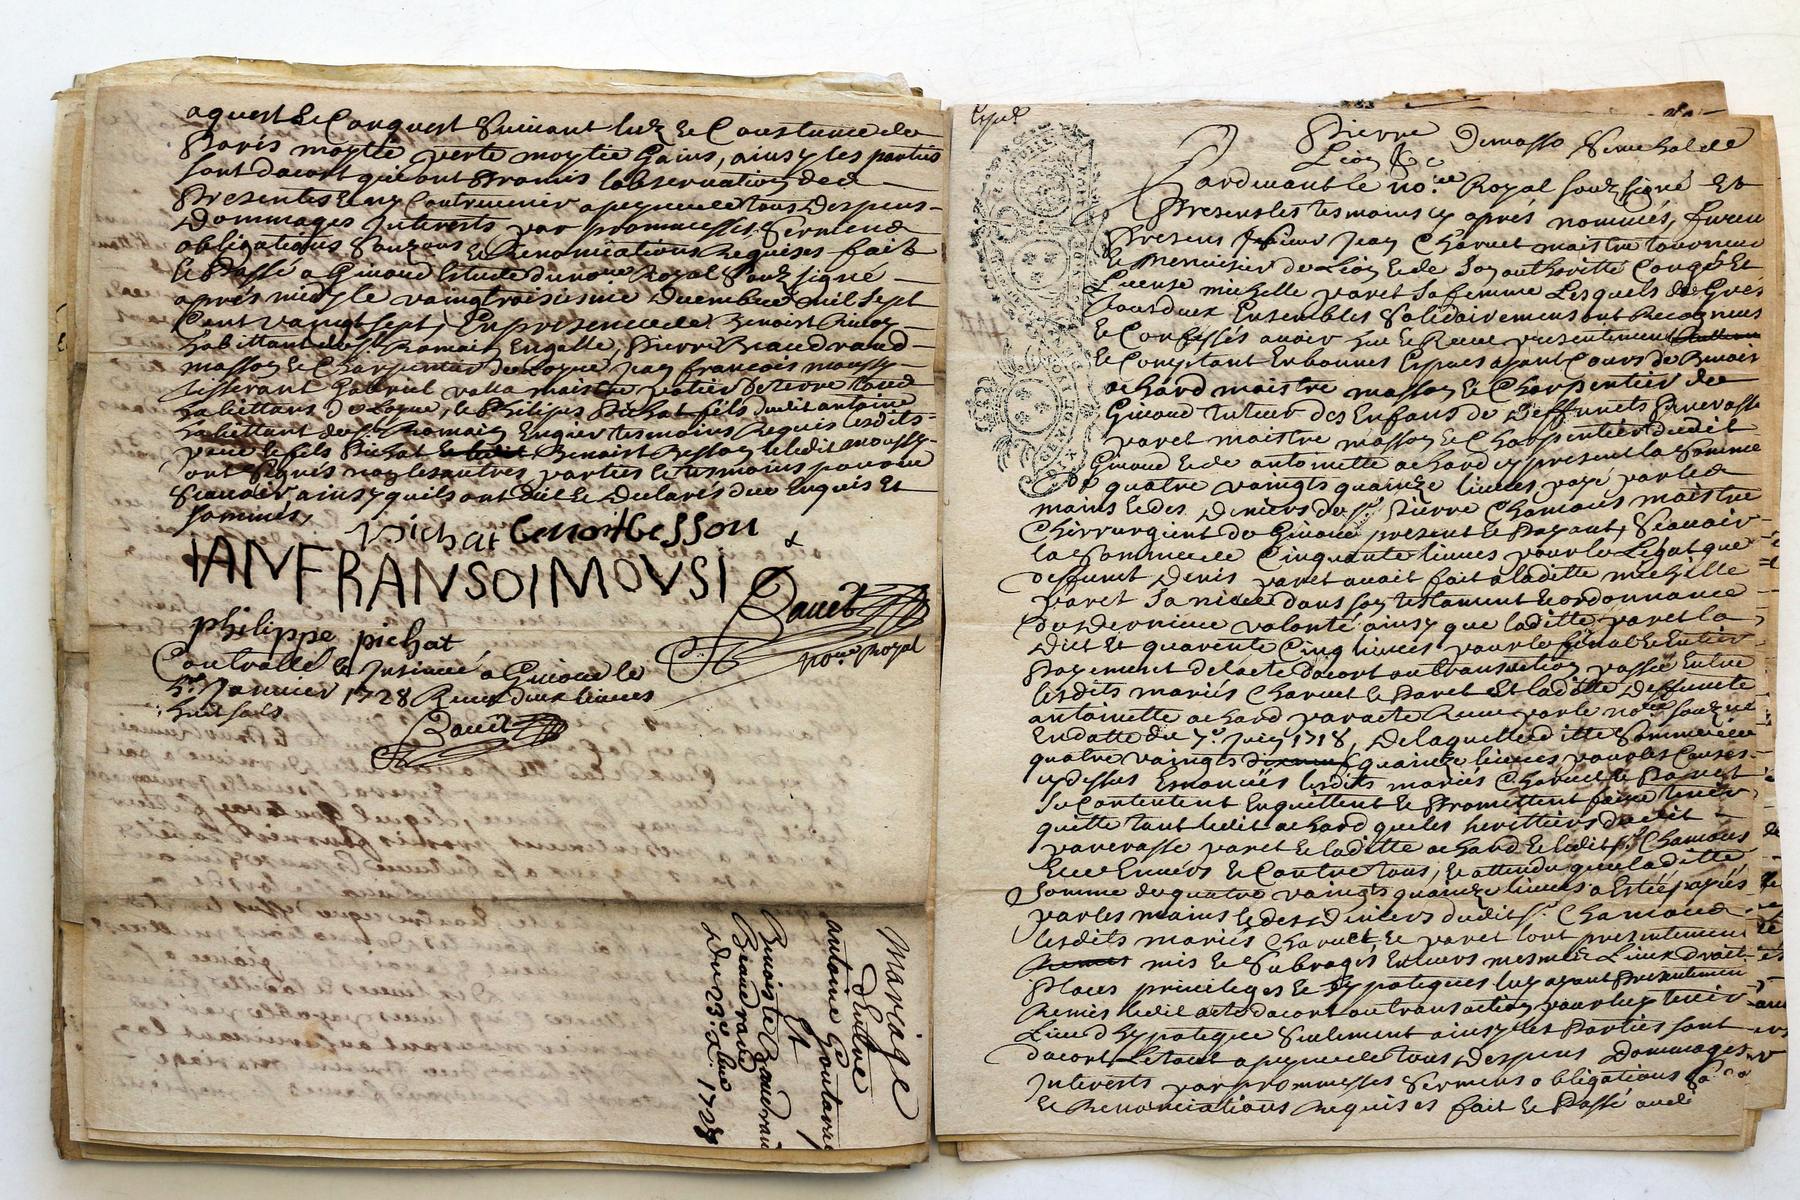 aquest & Conquest suivant luz & Coustume de
Paris moytié perte moytié Gains, ainsy les parties
sont dacort qui ont promis lobservation des
presentes & ny Contrevenir a peyne de tous despens
Dommages Interests par promesses serment
obligations & Renonciations Requises fait
& Passé a Ginoud Estude du no.re Royal soubz signé
aprés midy le vaingtroisiesme décembre mil sept
Cent vaingt sept, En presence de Benoist
habittant de St Romain Engalle, pierre Beaudrand
massoy & Charpentier de Loyre jean françois moussy
tisserant Gabriel valla maistre potier de terre tous
habittans de Loyre, & Philipes Pichat fils dudit antoine
habittant de St Romain Engier tesmoins Requis lesdits
pere & fils Pichat Benoist Besson & ledit moussy
ont signés nom les autres parties & tesmoins pour ne
sçavoir ainsy quils ont dit & declarés due Enquis Et
sommés,
pichat benoit besson
IANFRANSOIMOVSI
philippe pichat
no.re Royal
Controllé & Insinué a Ginoud le
5.e Janvier 1728 Receu deux livres
huit sols
Mariage
d'Entre
antoine
Et
Benoiste Beaudrand
Beaudrand
Du 23.e Xbre 1727
Pierre Demasso Senechal de
Lion &c
Pardevant le no.re Royal soubz signé Et
Presens les tesmoins cy aprés nommés, furen
presens sieur jean Charvet maistre tourneur
& menuisier de Lion & de son authoritté Congé Et
License michelle paret sa femme Lesquels de Gres
tous deux Ensembles solidairement ont Recogneus
& Confessés avoir heu & Receu presentement
& Comptant En bonnes Espeses ayant Cours de
achard maistre massoy & Charpentier de
Ginoud tuteur des Enfans de deffunts
paret maistre massoy & Charpentier dudit
Ginoud & de antoinette achard cy present la somme
quatre vaingts quainze livres payé par les
mains & des deniers du s.r pierre Chamoud maistre
Chirrurgient de Ginoud present & Payant, sçavoir
la somme de Cinquante livres pour le Légat que
deffunt denis paret avait fait a laditte michelle
paret sa niece dans son testament & ordonnance
de derniere volonté ainsy que laditte paret la
dict Et quarente Cinq livres pour le final & Entier
payement de lacte dacort ou transaction passée Entre
lesdits mariés Charvet & Paret Et laditte deffuncte
antoinette achard par acte Receu par le no.re soubzné
En datte du 7.e juin 1718, De laquelle ditte somme de
quatre vaingts quainze livres pour les Causes
cy dessus Enoncées lesdits mariés Charvet & Paret
se Contentent Enquittent & Promettent faire tenir
quitte tant ledit achard que les herittiers dudit
paret & laditte achard & ledit s.r Chamoud
Envers & Contre tous, & attendu que laditte
somme de quatre vaingts quainze livres a Esté payés
par les mains & des deniers dudit s.r Chamoud
lesdits mariés Charvet & paret lont presentement
mis & subrogés En leurs mesme Lieux droit
Places privileges & hypoteques luy ayant Presentement
Remis ledit acte dacort ou transaction pour luy tenir
Lieu d'hypoteque seulement ainsy les Parties sont
dacort & tout a peyne de tous despens Dommages
Interests par prommesses sermens obligations
& Renonciations Requises fait & Passé audi